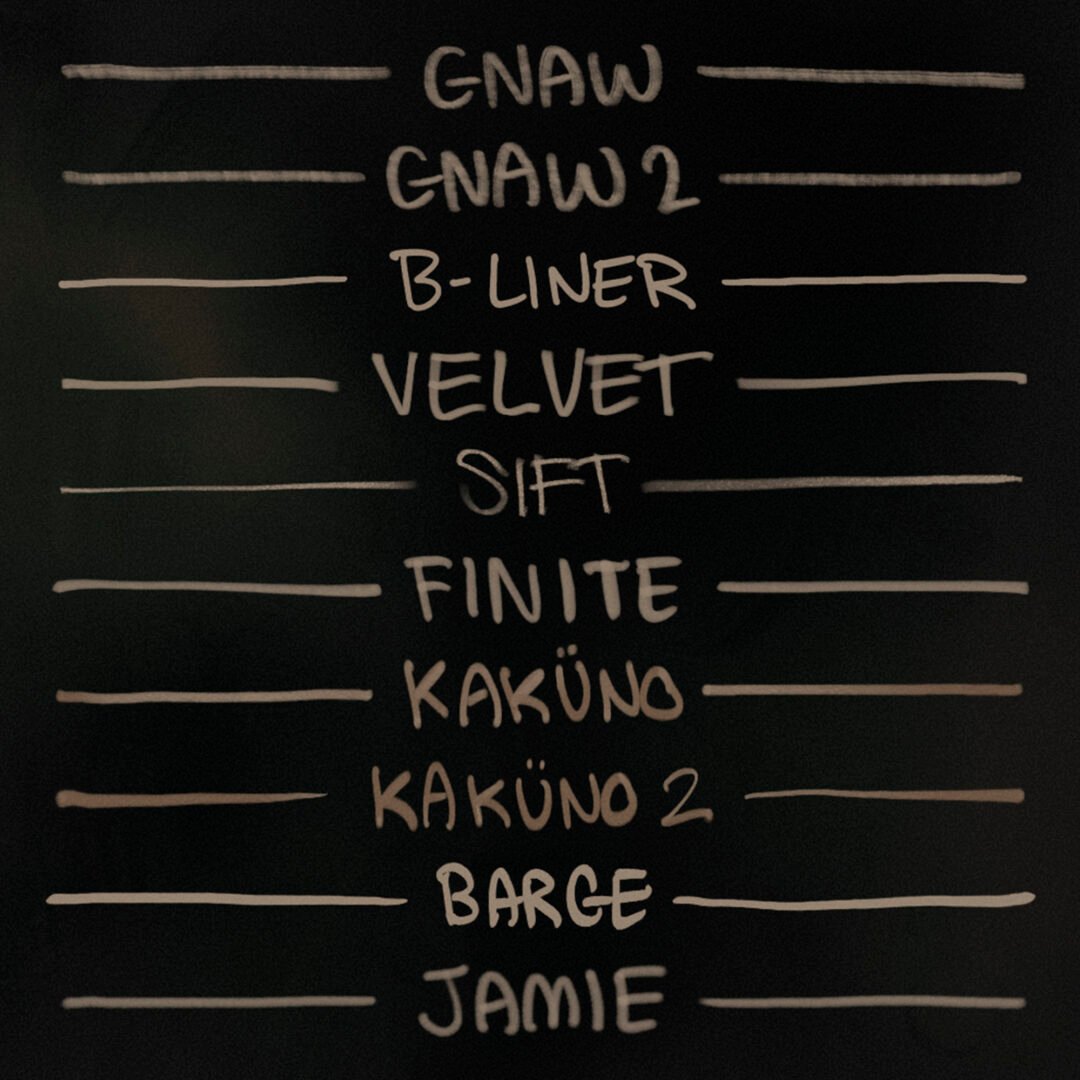 GNAW
GNAW 2
B-LINER
VELVET
SIFT
FINITE
KAKÜNO
KAKÜNO 2
BARGE
JAMIE